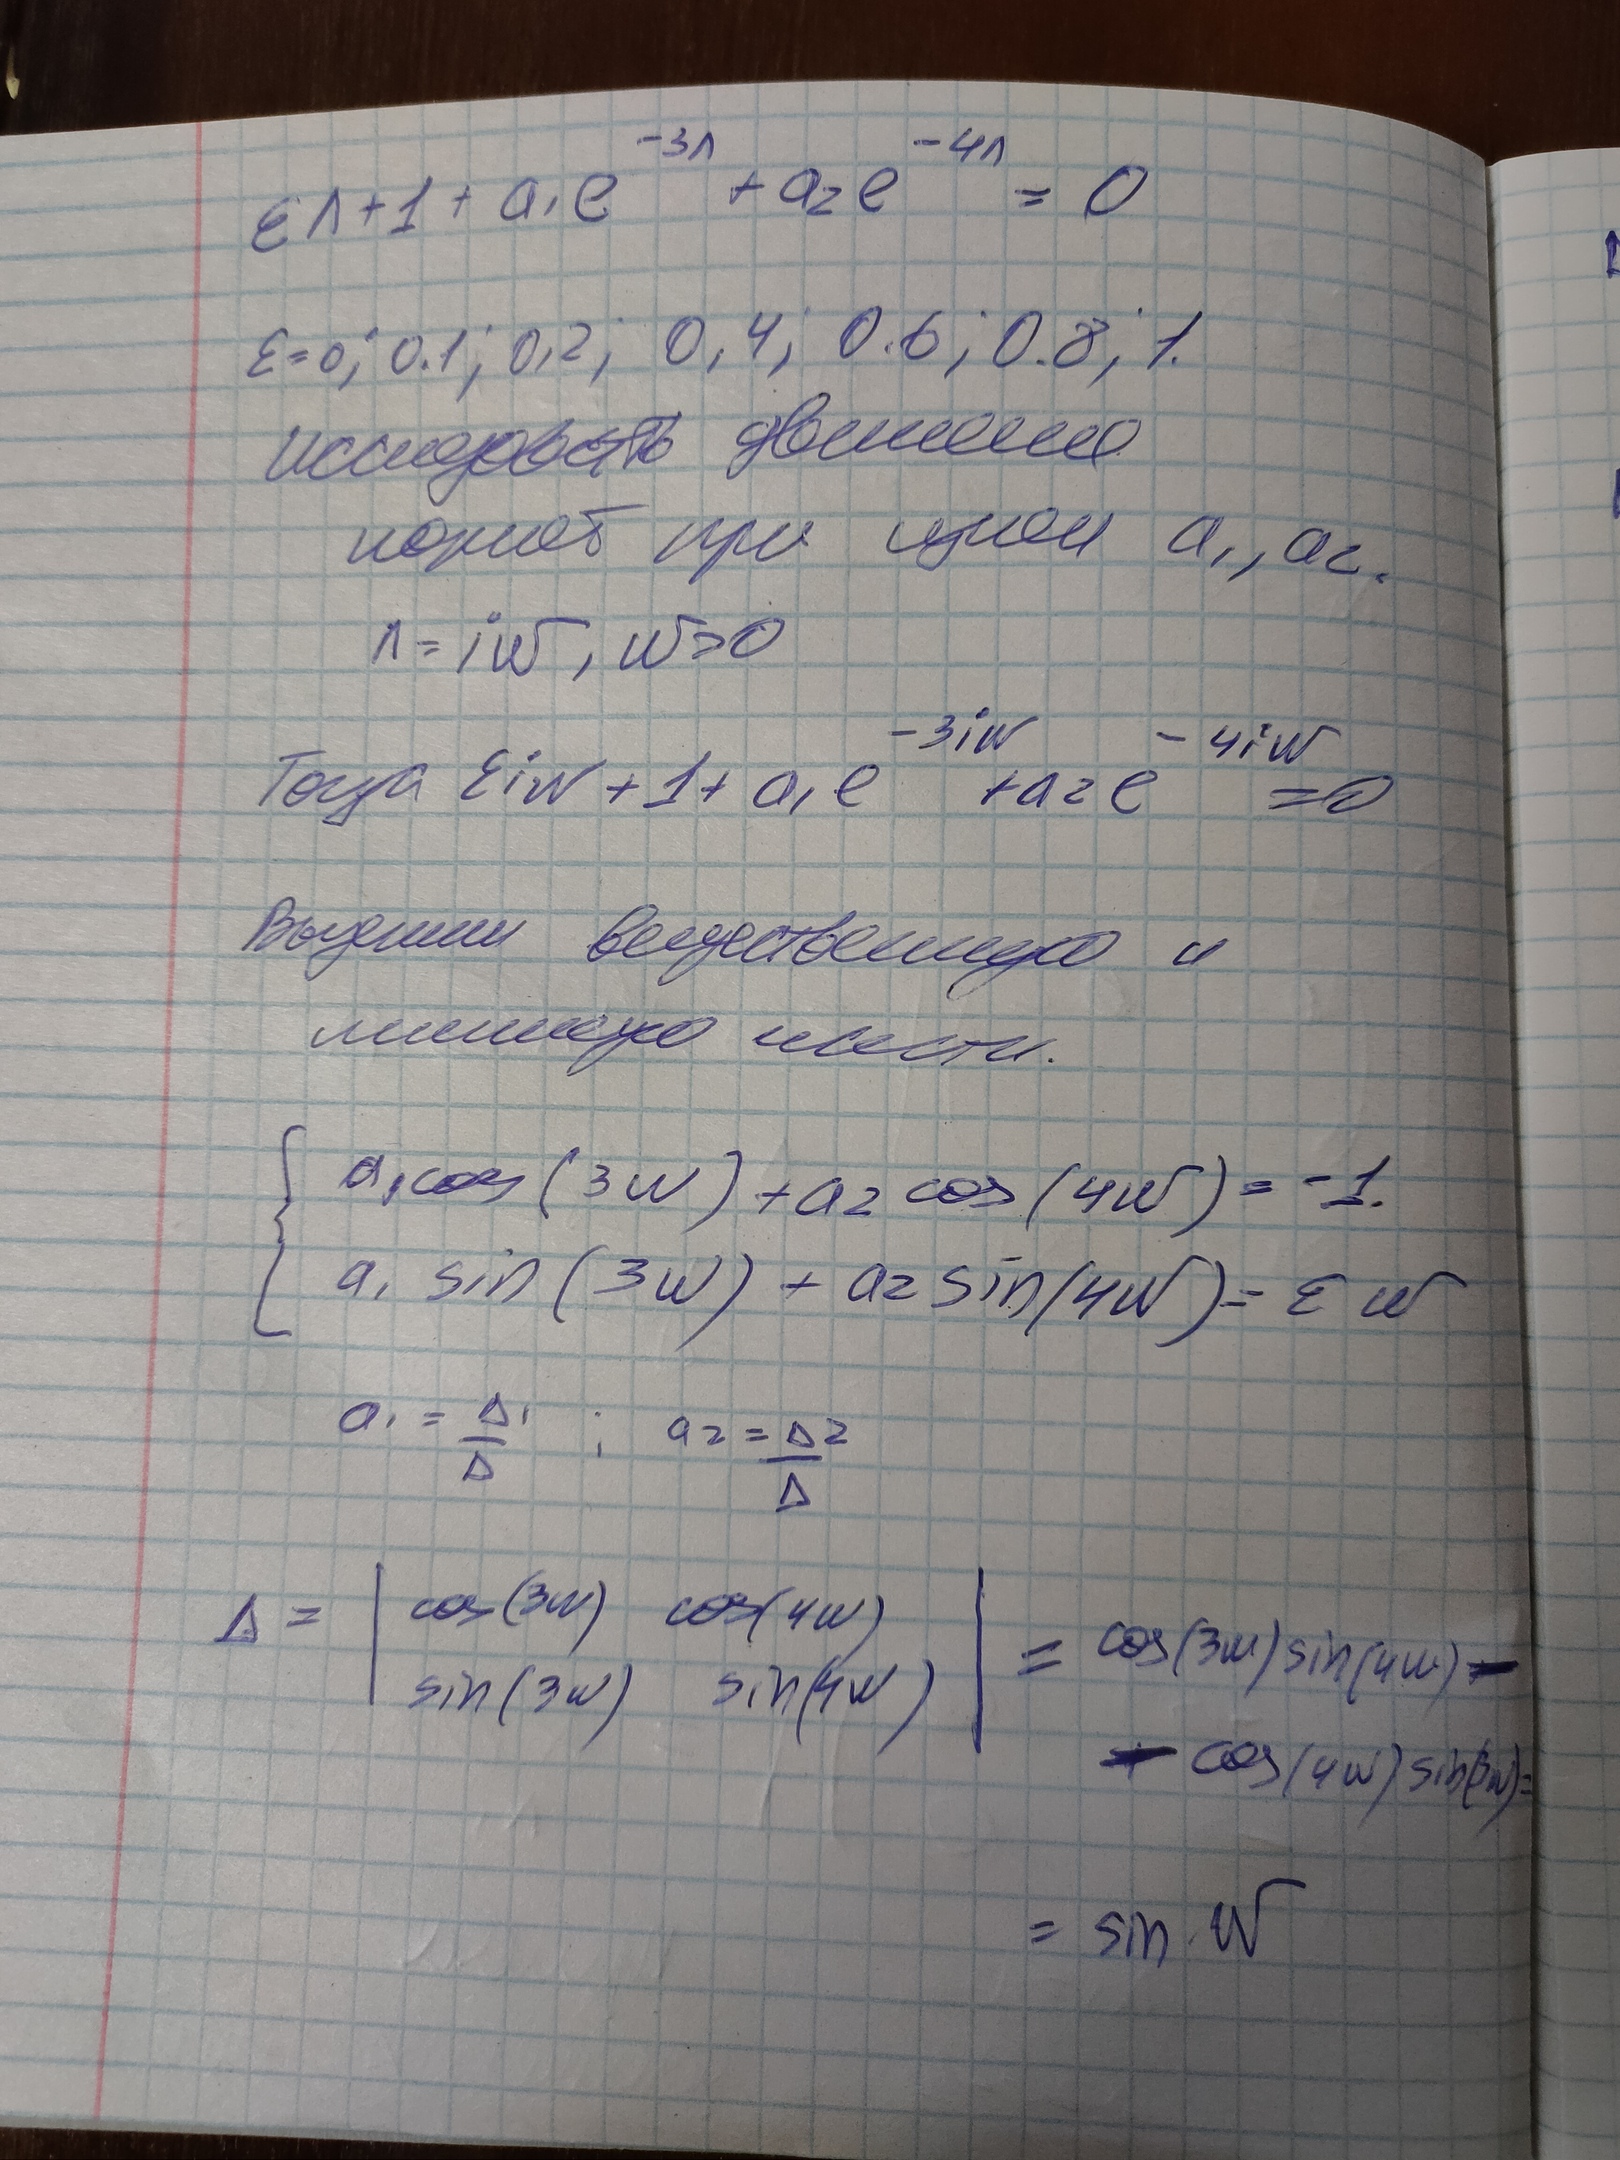 ελ+1+a₁e^{-3λ}+a₂e^{-4λ}=0
ε=0; 0.1; 0,2; 0,4; 0.6; 0.8; 1.
исследовать движение
корней при a₁, a₂.
λ=iω, ω>0
Тогда εiω+1+a₁e^{-3iω}+a₂e^{-4iω}=0
Выделим вещественную и
мнимую части.
{ a₁cos(3ω)+a₂cos(4ω)=-1.
a₁ sin(3ω)+a₂ sin(4ω)=εω
a₁=Δ₁/Δ ; a₂=Δ₂/Δ
Δ = | cos(3ω) cos(4ω) | = cos(3ω)sin(4ω)-
| sin(3ω) sin(4ω) | - cos(4ω)sin(3ω)=
= sin ω